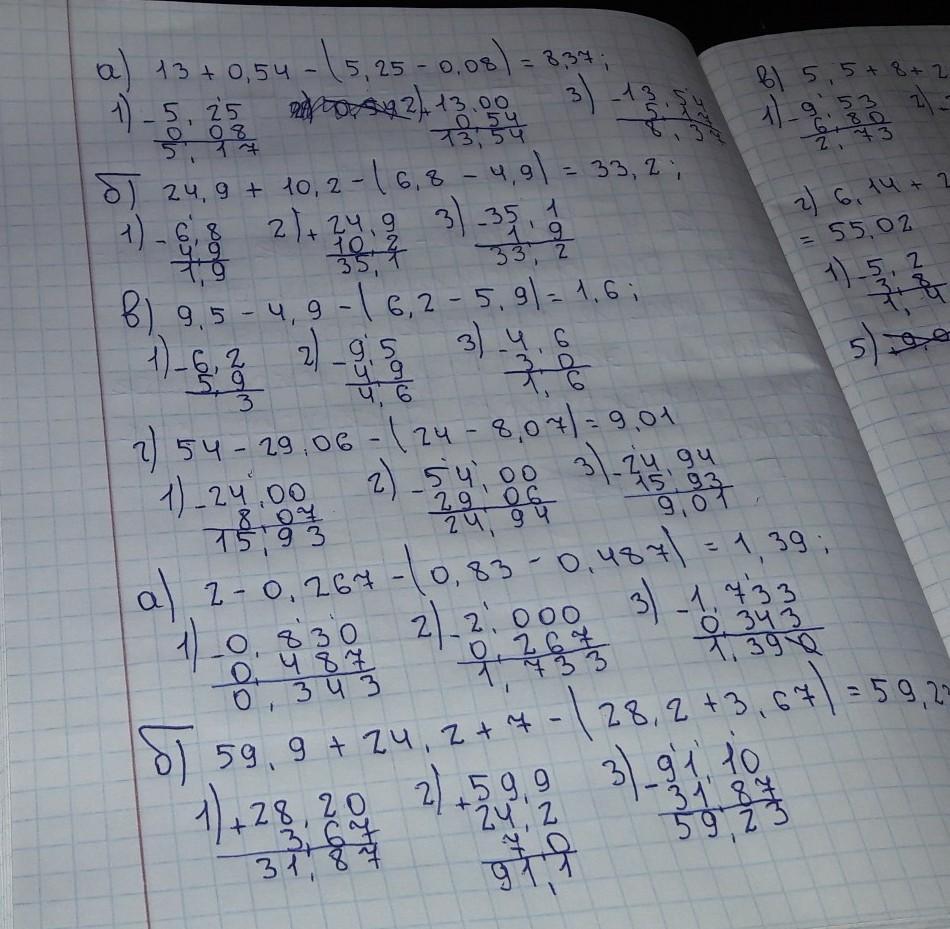 а) 13 + 0,54 - (5,25 - 0,08) = 8,37;
1) - 5,25 2) + 13,00 3) - 13,54
0,08 0,54 5,17
5,17 13,54 8,37
б) 24,9 + 10,2 - (6,8 - 4,9) = 33,2;
1) - 6,8 2) + 24,9 3) - 35,1
4,9 10,2 1,9
1,9 35,1 33,2
в) 9,5 - 4,9 - (6,2 - 5,9) = 1,6;
1) - 6,2 2) - 9,5 3) - 4,6
5,9 4,9 3,0
3 4,6 1,6
г) 54 - 29,06 - (24 - 8,07) = 9,01
1) - 24,00 2) - 54,00 3) - 24,94
8,07 29,06 15,93
15,93 24,94 9,01
а) 2 - 0,267 - (0,83 - 0,487) = 1,39;
1) - 0,830 2) - 2,000 3) - 1,733
0,487 0,267 0,343
0,343 1,733 1,390
б) 59,9 + 24,2 + 7 - (28,2 + 3,67) = 59,23
1) + 28,20 2) + 59,9 3) - 91,10
3,67 24,2 31,87
31,87 7,0 59,23
91,1
в) 5,5 + 8 + 2
1) - 9,53 2)
6,80
2,73
г) 6,14 +
= 55,02
1) - 5,2
3,8
1,4
5)